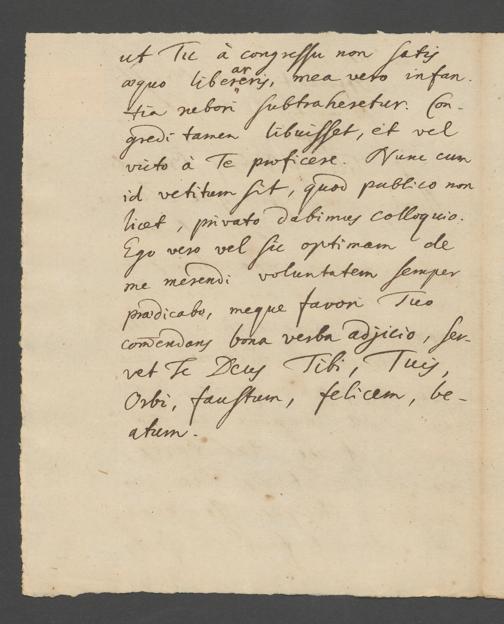 ut Tu à congressu non satis
æquo libereris, mea vero infan-
ar
tia rubori subtraheretur. Con-
gredi tamen libuisset, et vel
victo à Te proficere. Nunc cum
id vetitum sit, quod publico non
licet, privato dabimus colloquio.
Ego vero vel sic optimam de
me merendi voluntatem semper
prædicabo, meque favori Tuo
com̄endans bona verba adjicio, ser-
vet Te Deus Tibi, Tuis,
Orbi, faustum, felicem, be-
atum.